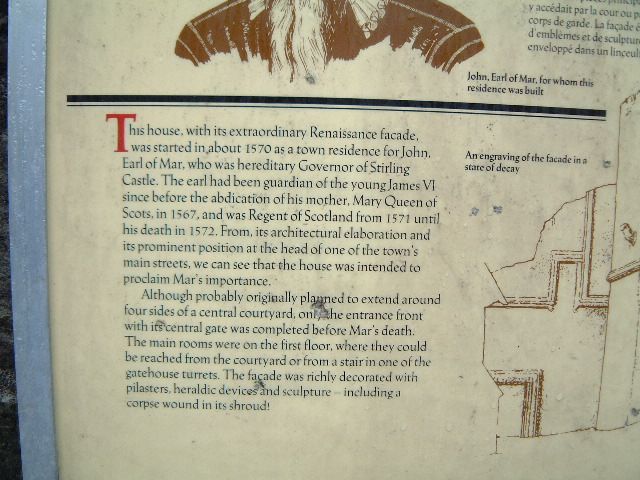 y accédait par la cour ou p
corps de garde. La façade é
d'emblèmes et de sculptur
enveloppé dans un linceul
John, Earl of Mar, for whom this
residence was built
This house, with its extraordinary Renaissance facade,
was started in about 1570 as a town residence for John,
Earl of Mar, who was hereditary Governor of Stirling
Castle. The earl had been guardian of the young James VI
since before the abdication of his mother, Mary Queen of
Scots, in 1567, and was Regent of Scotland from 1571 until
his death in 1572. From its architectural elaboration and
its prominent position at the head of one of the town's
main streets, we can see that the house was intended to
proclaim Mar's importance.
Although probably originally planned to extend around
four sides of a central courtyard, only the entrance front
with its central gate was completed before Mar's death.
The main rooms were on the first floor, where they could
be reached from the courtyard or from a stair in one of the
gatehouse turrets. The façade was richly decorated with
pilasters, heraldic devices and sculpture – including a
corpse wound in its shroud!
An engraving of the facade in a
state of decay